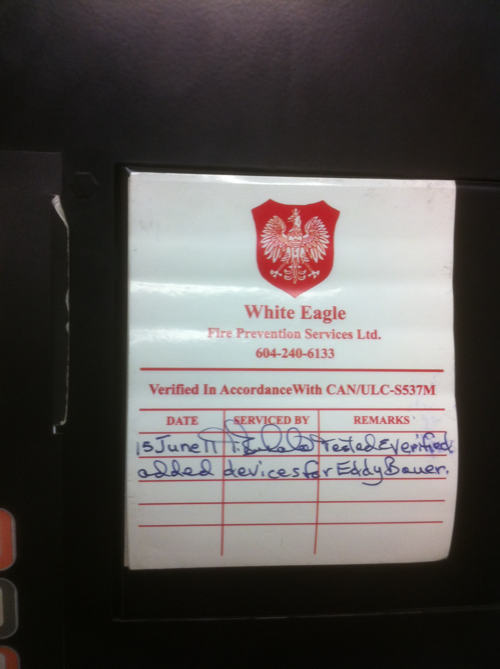 White Eagle
Fire Prevention Services Ltd.
604-240-6133
Verified In AccordanceWith CAN/ULC-S537M
DATE SERVICED BY REMARKS
15 June 11 Tested & verified
added devices for Eddy Bauer.